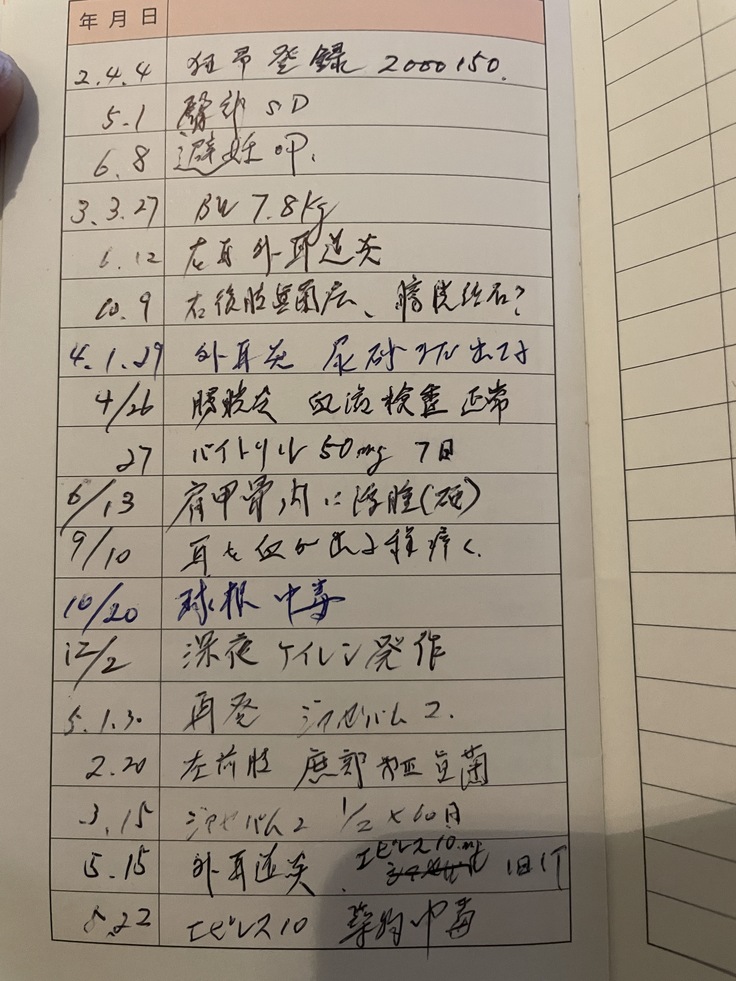 年 月 日
2.4.4 狂帚登録 2000150.
5.1 臀部 SD
6.8 避妊OP.
3.3.27 BW 7.8kg
6.12 左耳外耳道炎
10.9 右後肢真菌 、膀胱結石?
4.1.29 外耳炎 尿砂 出てる
4/26 膀胱炎 血液検査 正常
27 バイトリル 50mg 7日
6/13 肩甲骨 内に 腫(硬)
9/10 耳を血が出る程痒く.
10/20 球根中毒
12/2 深夜 ケイレン発作
5.1.30. 再発 ジアゼパム 2.
2.20 左前肢 真菌
3.15 ジアゼパム2 1/2×60日
5.15 外耳道炎、エピレス10mg 1日1T
8.22 エピレス10 薬物中毒